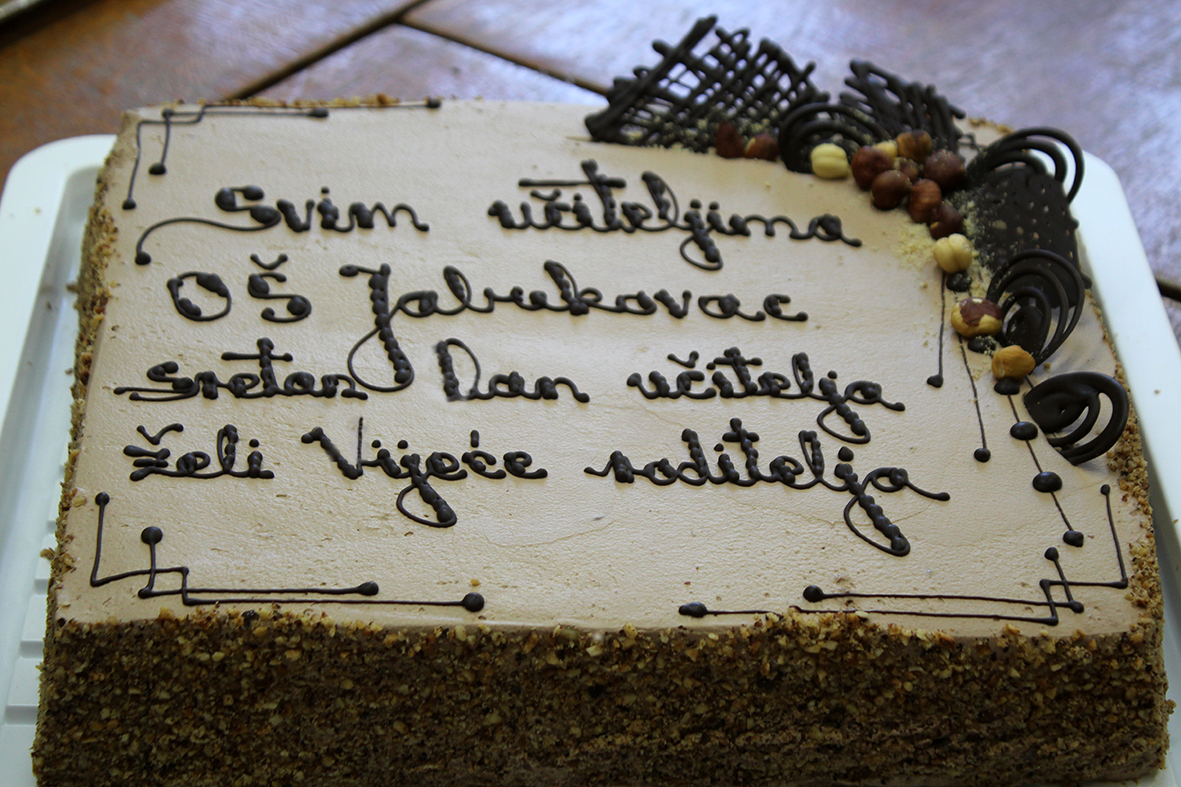 Svim učiteljima
OŠ Jabukovac
Sretan Dan učitelja
želi Vijeće roditelja